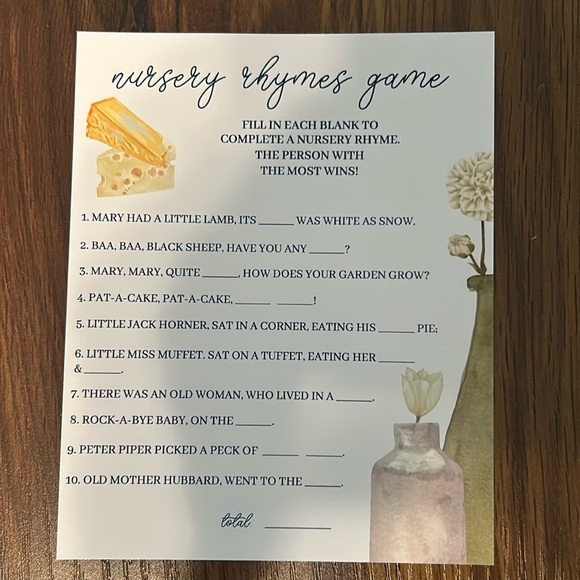 nursery rhymes game
FILL IN EACH BLANK TO
COMPLETE A NURSERY RHYME.
THE PERSON WITH
THE MOST WINS!
1. MARY HAD A LITTLE LAMB, ITS ______ WAS WHITE AS SNOW.
2. BAA, BAA, BLACK SHEEP, HAVE YOU ANY ______?
3. MARY, MARY, QUITE ______, HOW DOES YOUR GARDEN GROW?
4. PAT-A-CAKE, PAT-A-CAKE, ______ ______!
5. LITTLE JACK HORNER, SAT IN A CORNER, EATING HIS ______ PIE;
6. LITTLE MISS MUFFET. SAT ON A TUFFET, EATING HER ______
& ______.
7. THERE WAS AN OLD WOMAN, WHO LIVED IN A ______.
8. ROCK-A-BYE BABY, ON THE ______.
9. PETER PIPER PICKED A PECK OF ______ ______.
10. OLD MOTHER HUBBARD, WENT TO THE ______.
total ___________